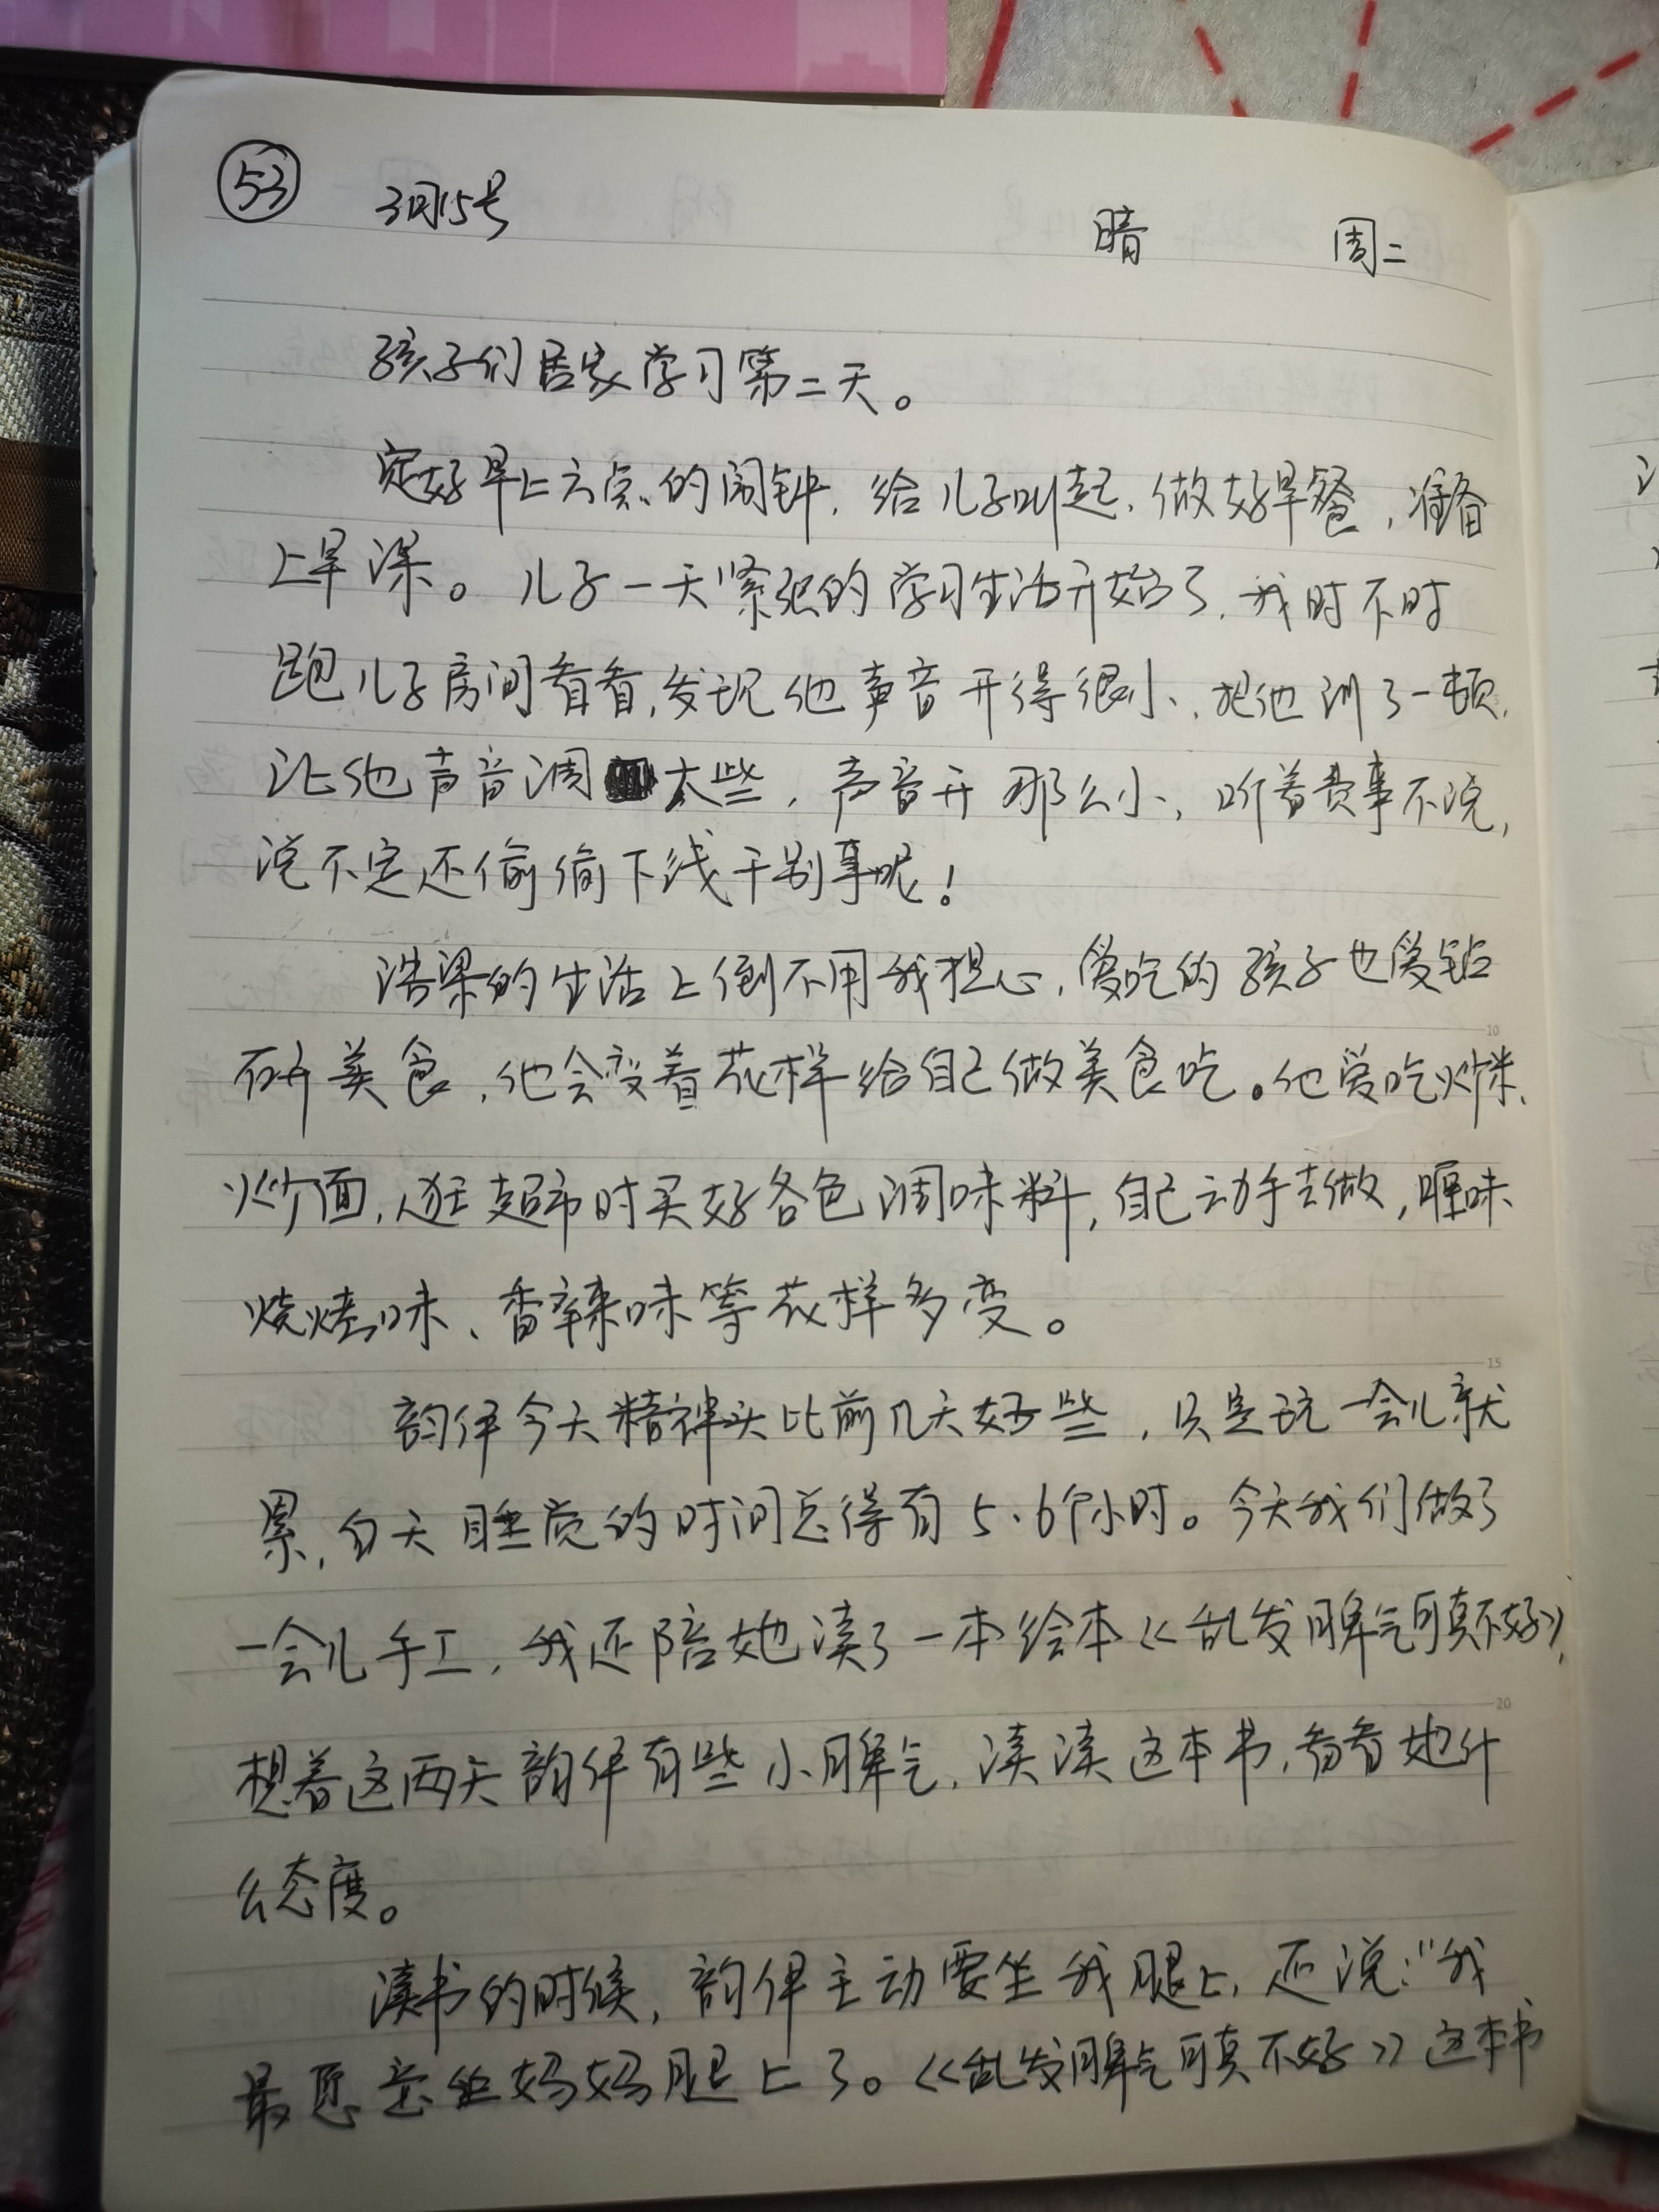 53 3月15号 晴 周二
孩子们居家学习第二天。
定好早上六点的闹钟,给儿子叫起,做好早餐,准备
上早课。儿子一天紧张的学习生活开始了,我时不时
跑儿子房间看看,发现他声音开得很小,把他训了一顿,
让他声音调大些,声音开那么小,听着费事不说,
说不定还偷偷下线干别事呢!
浩梁的生活上倒不用我担心,爱吃的孩子也爱钻
研美食,他会变着花样给自己做美食吃。他爱吃炒米、
炒面,逛超市时买好各色调味料,自己动手去做,味
烧烤味、香辣味等花样多变。
韵伊今天精神头比前几天好些,只是玩一会儿就
累,白天睡觉的时间总得有5.6个小时。今天我们做了
一会儿手工,我还陪她读了一本绘本《乱发脾气可真不好》,
想着这两天韵伊有些小脾气,读读这本书,看看她什
么态度。
读书的时候,韵伊主动要坐我腿上,还说:“我
最愿意坐妈妈腿上了。《乱发脾气可真不好》这本书